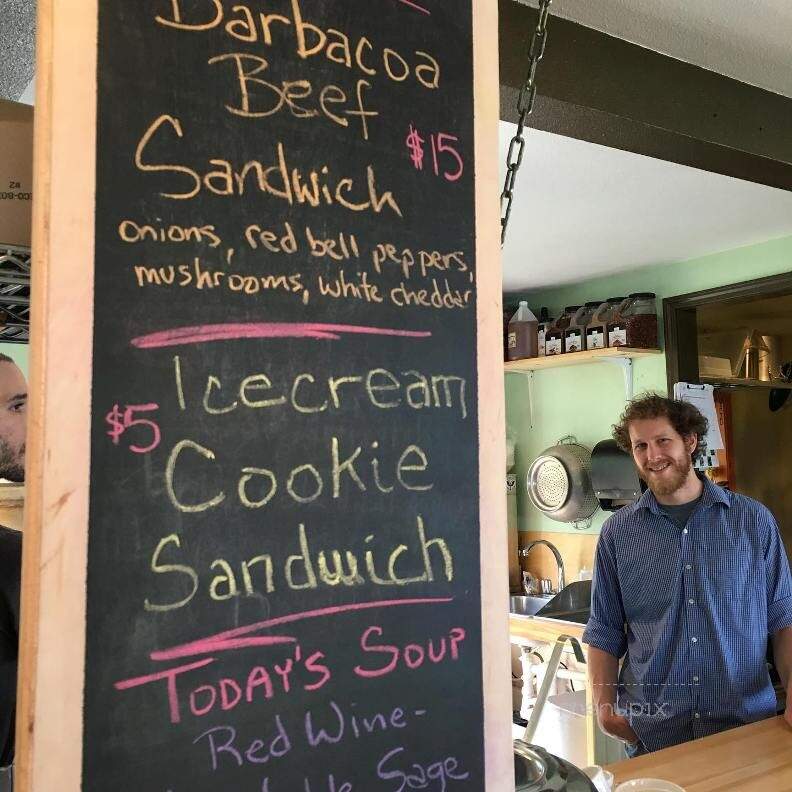 Barbacoa
Beef
Sandwich $15
onions, red bell peppers,
mushrooms, white cheddar
Icecream
$5 Cookie
Sandwich
TODAY'S SOUP
Red Wine-
Sage